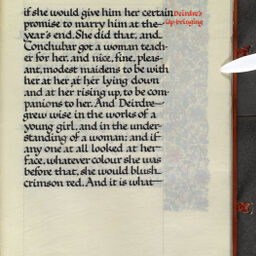 if she would give him her certain
Deirdre's
Up-bringing
promise to marry him at the
year's end. She did that, and
Conchubar got a woman teach-
er for her, and nice, fine, pleas-
ant, modest maidens to be with
her at her at her lying down
and at her rising up, to be com-
panions to her. And Deirdre
grew wise in the works of a
young girl, and in the under-
standing of a woman; and if
any one at all looked at her
face, whatever colour she was
before that, she would blush
crimson red. And it is what